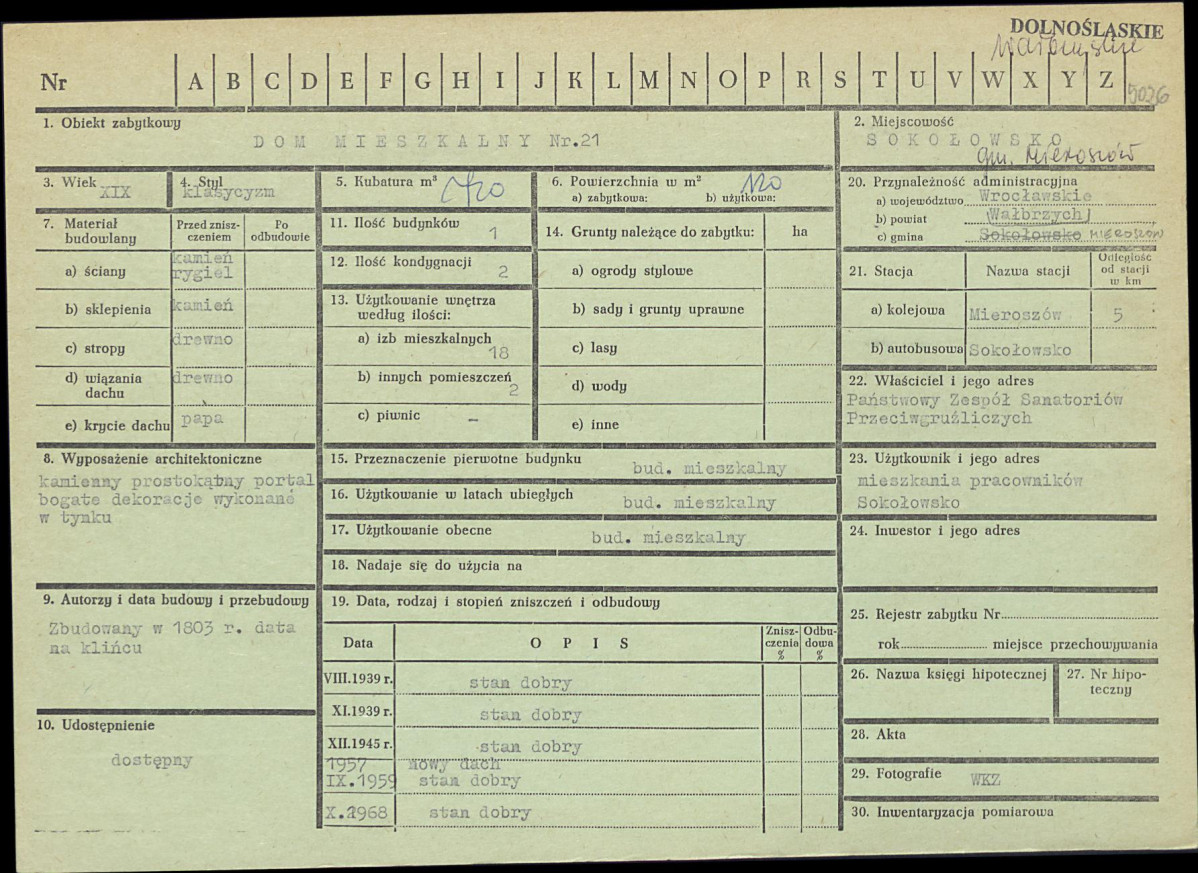 DOLNOŚLĄSKIE
Nr A B C D E F G H I J K L M N O P R S T U V W X Y Z
5026
1. Obiekt zabytkowy
DOM MIESZKALNY Nr.21
2. Miejscowość
SOKOŁOWSKO
gm. Mieroszów
3. Wiek
XIX
4. Styl
klasycyzm
5. Kubatura m³
6. Powierzchnia w m²
120
a) zabytkowa: b) użytkowa:
20. Przynależność administracyjna
a) województwo Wrocławskie
b) powiat Wałbrzych
c) gmina Sokołowsko MIEROSZÓW
7. Materiał budowlany
Przed zniszczeniem
Po odbudowie
a) ściany kamień rygiel
b) sklepienia kamień
c) stropy drewno
d) wiązania dachu drewno
e) krycie dachu papa
11. Ilość budynków 1
12. Ilość kondygnacji 2
13. Użytkowanie wnętrza według ilości:
a) izb mieszkalnych 18
b) innych pomieszczeń 2
c) piwnic –
14. Grunty należące do zabytku: ha
a) ogrody stylowe
b) sady i grunty uprawne
c) lasy
d) wody
e) inne
21. Stacja Nazwa stacji Odległość od stacji w km
a) kolejowa Mieroszów 5
b) autobusowa Sokołowsko
22. Właściciel i jego adres
Państwowy Zespół Sanatoriów
Przeciwgruźliczych
8. Wyposażenie architektoniczne
kamienny prostokątny portal
bogate dekoracje wykonane
w tynku
15. Przeznaczenie pierwotne budynku
bud. mieszkalny
16. Użytkowanie w latach ubiegłych
bud. mieszkalny
17. Użytkowanie obecne
bud. mieszkalny
18. Nadaje się do użycia na
23. Użytkownik i jego adres
mieszkania pracowników
Sokołowsko
24. Inwestor i jego adres
9. Autorzy i data budowy i przebudowy
Zbudowany w 1803 r. data
na klińcu
19. Data, rodzaj i stopień zniszczeń i odbudowy
Data OPIS Zniszczenia % Odbudowa %
VIII.1939 r. stan dobry
XI.1939 r. stan dobry
XII.1945 r. stan dobry
1957 nowy dach
IX.1959 stan dobry
X.1968 stan dobry
25. Rejestr zabytku Nr
rok miejsce przechowywania
26. Nazwa księgi hipotecznej
27. Nr hipoteczny
10. Udostępnienie
dostępny
28. Akta
29. Fotografie WKZ
30. Inwentaryzacja pomiarowa